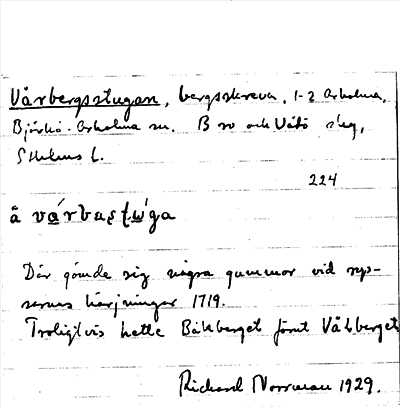 Vårbergsstugan, bergsskreva, 1-2 Arholma,
Björkö-Arholma sn. B ro och Väto s:lag,
Sthlms l.
224
å vårbastω̨ga
Där gömde sig några gummor vid rys-
sarnas härjningar 1719.
Troligtvis hette Båkberget förut Vårberget
Rickard Norrman 1929.